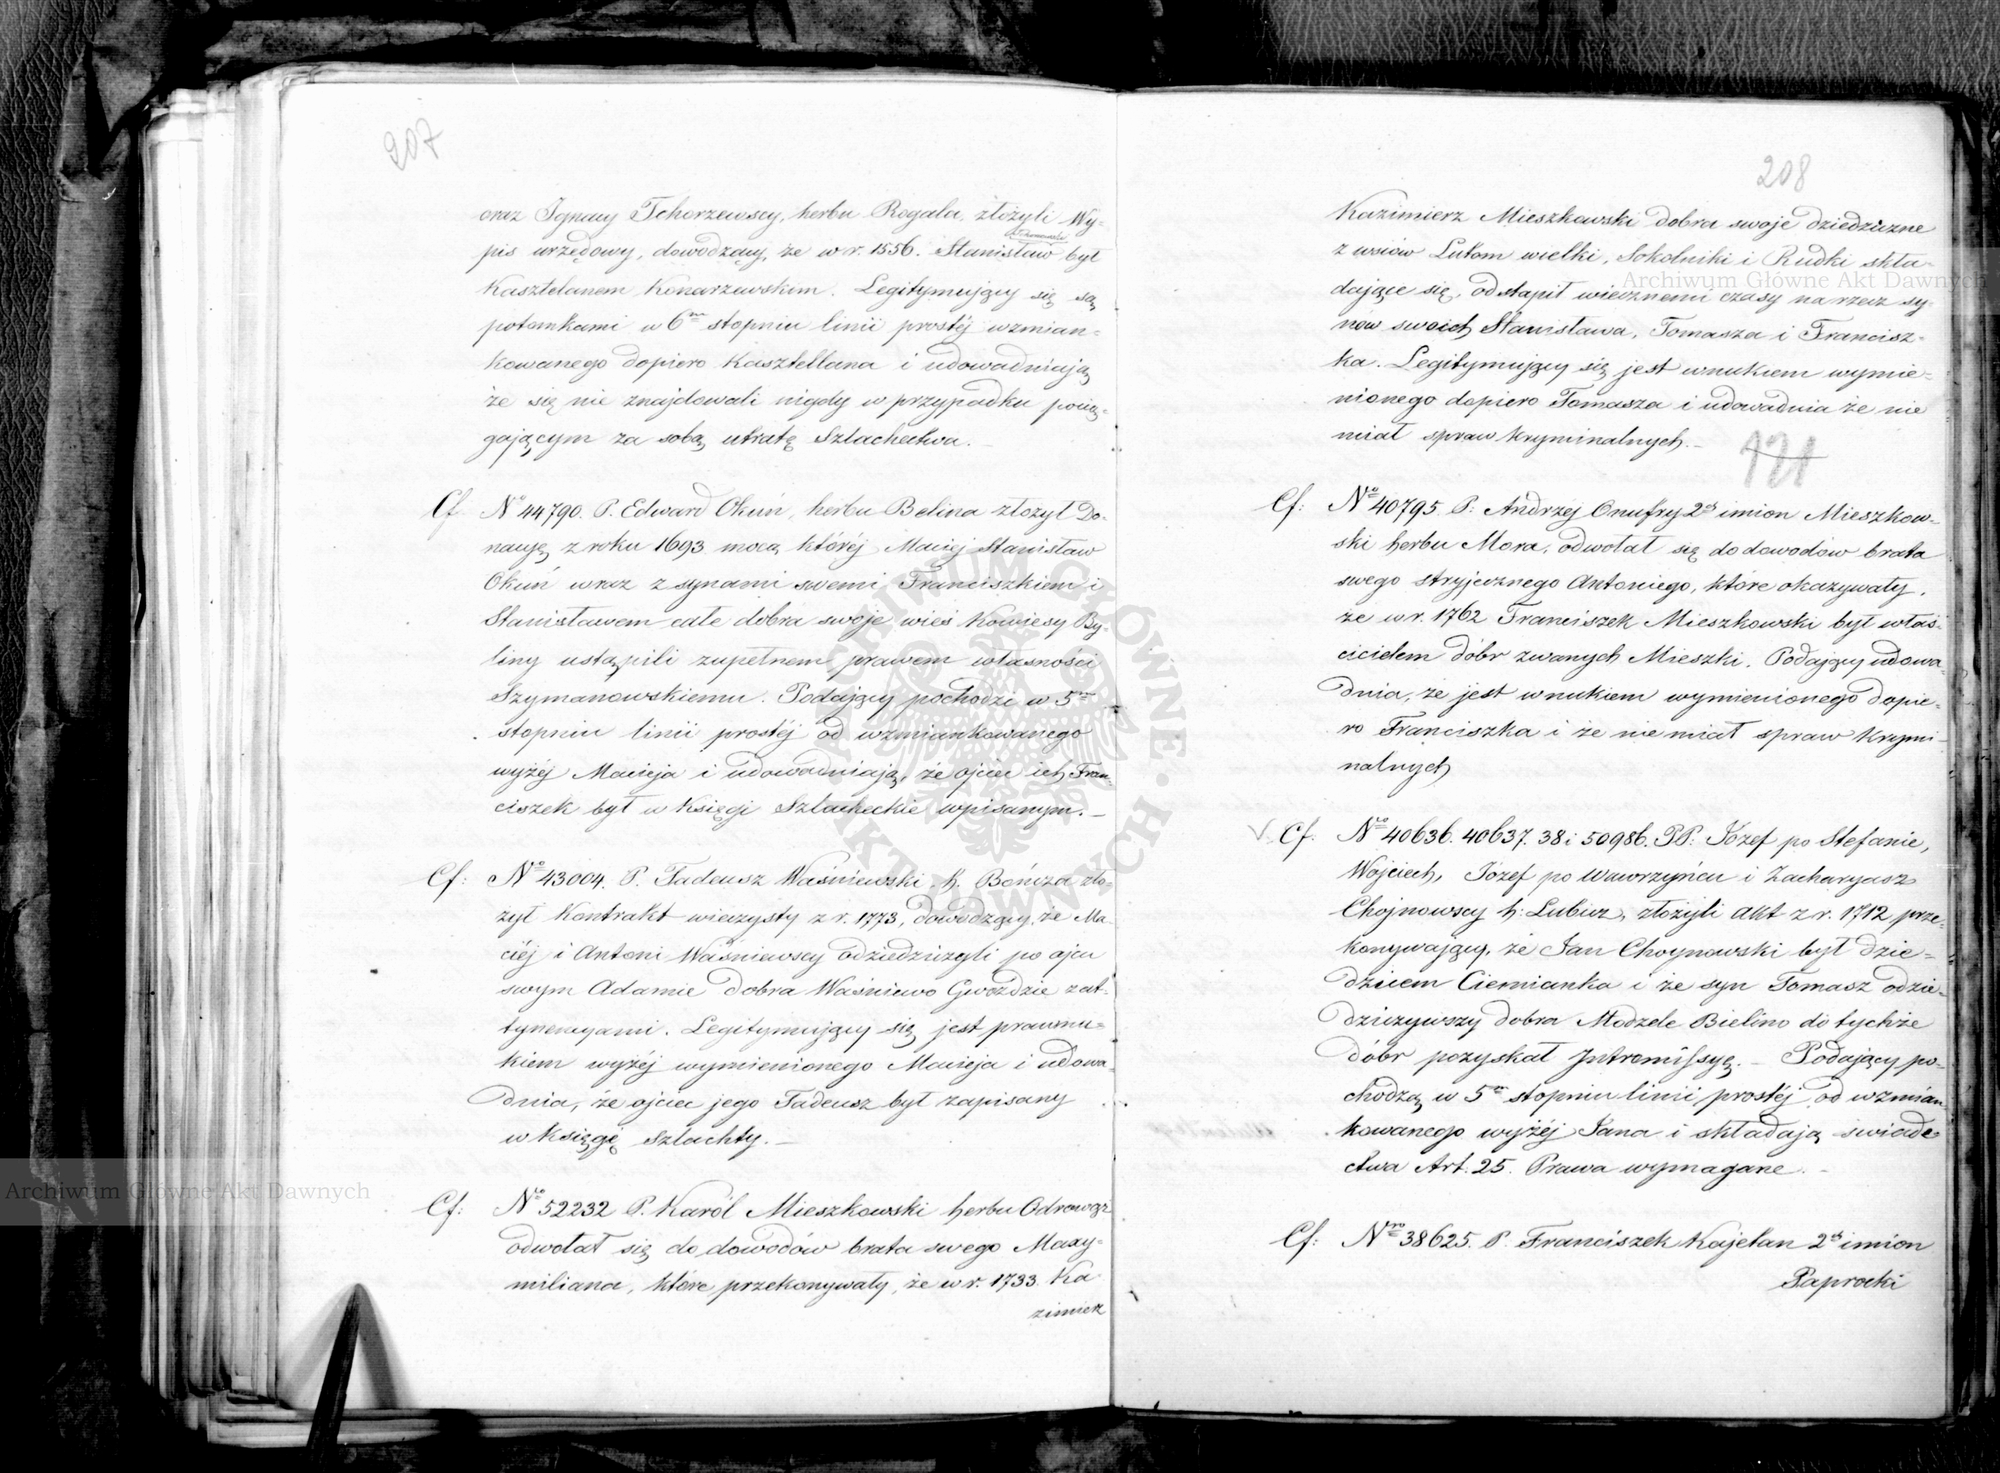 207
oraz Ignacy Tchorzewscy, herbu Rogala, złożyli Wy-
Tchorzewski
pis urzędowy, dowodzący, że w r. 1556. Stanisław był
Kasztelanem Konarzewskim. Legitymujący się są
potomkami w 6m stopniu linii prostéj wzmian-
kowanego dopiero Kasztellana i udowadniają
że się nie znajdowali nigdy w przypadku pocią-
gającym za sobą utratę Szlachectwa.
Cf. No 44790. P. Edward Okuń, herbu Belina złożył Do-
nacyę z roku 1693 mocą któréj Maciej Stanisław
Okuń wraz z synami swemi Franciszkiem i
Stanisławem całe dobra swoje wieś Kowiesy By-
liny ustąpili zupełnem prawem własności
Szymanowskiemu. Podający pochodzi w 5m
stopniu linii prostéj od wzmiankowanego
wyżéj Macieja i udowadniają, że ojciec ich Fran-
ciszek był w Księgi Szlacheckie wpisanym.
Cf: No 43004. P. Tadeusz Waśniewski h. Bończa zło-
żył Kontrakt wieczysty z r. 1773, dowodzący, że Ma-
ciéj i Antoni Waśniewscy odziedziczyli po ojcu
swym Adamie dobra Waśniewo Gwoździe z at-
tynencyami. Legitymujący się jest prawnu-
kiem wyżéj wymienionego Macieja i udowa-
dnia, że ojciec jego Tadeusz był zapisany
w Księgę Szlachty.
Cf: No 52232 P. Karól Mieszkowski herbu Odrowąż
odwołał się do dowodów brata swego Maxy-
miliana, które przekonywały, że w r. 1733 Ka-
zimierz
208
Kazimierz Mieszkowski dobra swoje dziedziczne
z wsiów Lutom wielki, Sokolniki i Rudki skła-
dające się, odstąpił wiecznemi czasy na rzecz sy-
nów swoich Stanisława, Tomasza i Francisz-
ka. Legitymujący się jest wnukiem wymie-
nionego dopiero Tomasza i udowadnia że nie
miał spraw kryminalnych.
121
Cf: No 40795 P: Andrzéj Onufry 2ch imion Mieszkow-
ski herbu Mora, odwołał się do dowodów brata
swego stryjecznego Antoniego, które okazywały,
że w r. 1762 Franciszek Mieszkowski był właś-
cicielem dóbr zwanych Mieszki. Podający udowa-
dnia, że jest wnukiem wymienionego dopie-
ro Franciszka i że nie miał spraw krymi-
nalnych
V. Cf. No 40636. 40637. 38 i 50986. PP: Józef po Stefanie,
Wojciech, Józef po Wawrzyńcu i Zacharyasz
Chojnowscy h: Lubicz, złożyli Akt z r. 1712 prze-
konywający, że Jan Choynowski był dzie-
dzicem Ciemnianka i że syn Tomasz odzie-
dziczywszy dobra Modzele Bielino do tychże
dóbr pozyskał Intromissyę. — Podający po-
chodzą w 5m stopniu linii prostéj od wzmian-
kowanego wyżéj Jana i składają świade-
ctwa Art. 25. Prawa wymagane.
Cf: Nro 38625. P. Franciszek Kajetan 2ch imion
Paprocki
Archiwum Główne Akt Dawnych
Archiwum Główne Akt Dawnych
ARCHIWUM GŁÓWNE AKT DAWNYCH